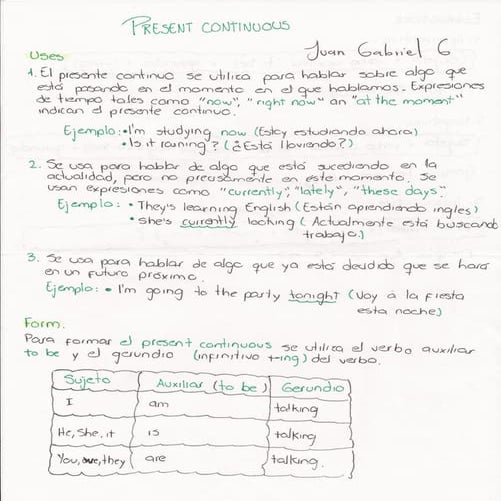 PRESENT CONTINUOUS
Juan Gabriel G
Uses
1. El presente continuo se utilica para hablar sobre algo que
está pasando en el momento en el que hablamos. Expresiones
de tiempo tales como "now", "right now" an "at the moment"
indican el presente continuo.
Ejemplo: • I'm studying now (Estoy estudiando ahora)
• Is it raining? (¿Está lloviendo?)
2. Se usa para hablar de algo que está sucediendo en la
actualidad, pero no precisamente en este momento. Se
usan expresiones como "currently", "lately", "these days."
Ejemplo: • They's learning English (Están aprendiendo ingles)
• She's currently looking (Actualmente está buscando
trabajo.)
3. Se usa para hablar de algo que ya está decidido que se hará
en un futuro próximo.
Ejemplo: • I'm going to the party tonight (Voy a la fiesta
esta noche)
Form.
Para formar el present continuous se utiliza el verbo auxiliar
to be y el gerundio (infinitivo +ing) del verbo.
Sujeto Auxiliar (to be) Gerundio
I am talking
He, She, it is talking
You, we, they are talking.